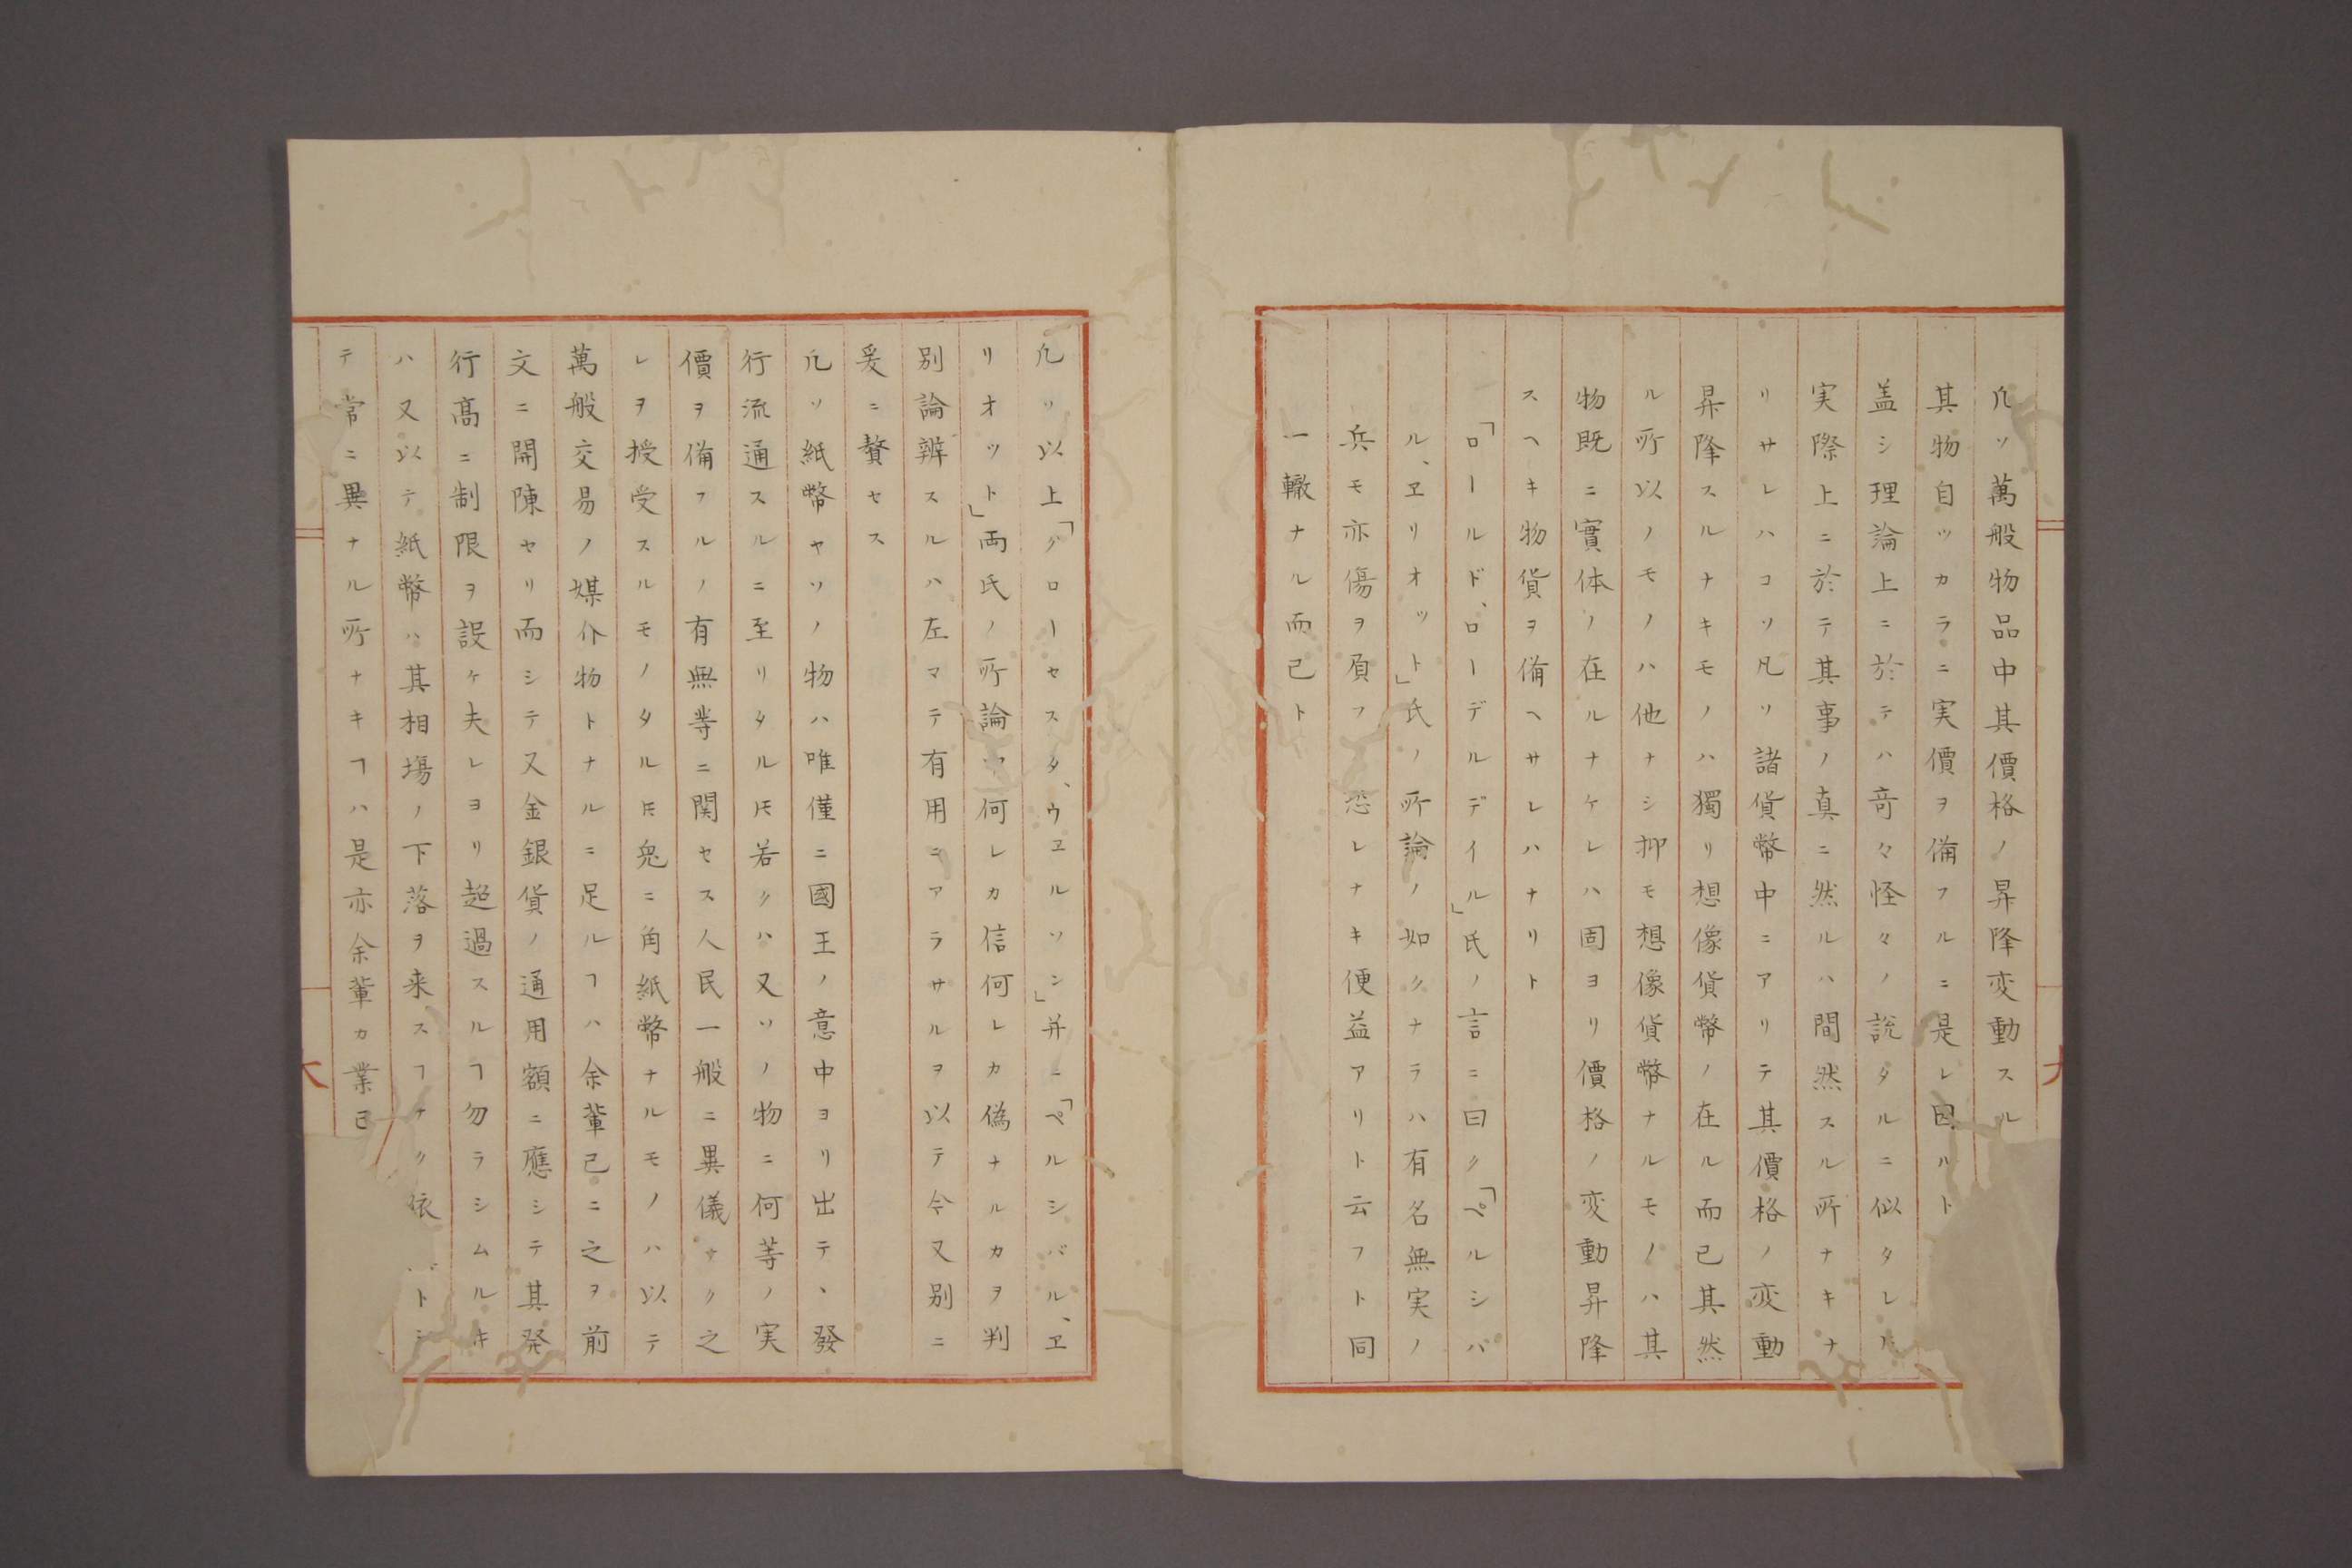 凡ソ萬般物品中其價格ノ昇降変動スル
其物自ツカラニ実價ヲ備フルニ是レ因ルト
盖シ理論上ニ於テハ竒々怪々ノ説タルニ似タレ
実際上ニ於テ其事ノ真ニ然ルハ間然スル所ナキナ
リサレハコソ凡ソ諸貨幣中ニアリテ其價格ノ変動
昇降スルナキモノハ獨リ想像貨幣ノ在ル而已其然
ル所以ノモノハ他ナシ抑モ想像貨幣ナルモノハ其
物既ニ實体ノ在ルナケレハ固ヨリ價格ノ変動昇降
スヘキ物貨ヲ備ヘサレハナリト
「ロールド、ローデルデイル」氏ノ言ニ曰ク「ペルシバ
ル、ヱリオット」氏ノ所論ノ如クナラハ有名無実ノ
兵モ亦傷ヲ負フノ恐レナキ便益アリト云フト同
一轍ナル而已ト
凡ソ以上「グローセスタ、ウヱルソン」并ニ「ペルシバル、ヱ
リオット」両氏ノ所論ヤ何レカ信何レカ偽ナルカヲ判
別論辨スルハ左マテ有用ニアラサルヲ以テ今又別ニ
爰ニ贅セス
凡ソ紙幣ヤソノ物ハ唯僅ニ國王ノ意中ヨリ出テ、發
行流通スルニ至リタルㇳモ若クハ又ソノ物ニ何等ノ実
價ヲ備フルノ有無等ニ関セス人民一般ニ異儀ナク之
レヲ授受スルモノタルㇳモ兎ニ角紙幣ナルモノハ以テ
萬般交易ノ媒介物トナルニ足ルヿハ余輩已ニ之ヲ前
文ニ開陳セリ而シテ又金銀貨ノ通用額ニ應シテ其発
行髙ニ制限ヲ設ケ夫レヨリ超過スルヿ勿ラシムルキ
ハ又以テ紙幣ハ其相塲ノ下落ヲ来スヿナク依 トシ
テ常ニ異ナル所ナキヿハ是亦余輩カ業已